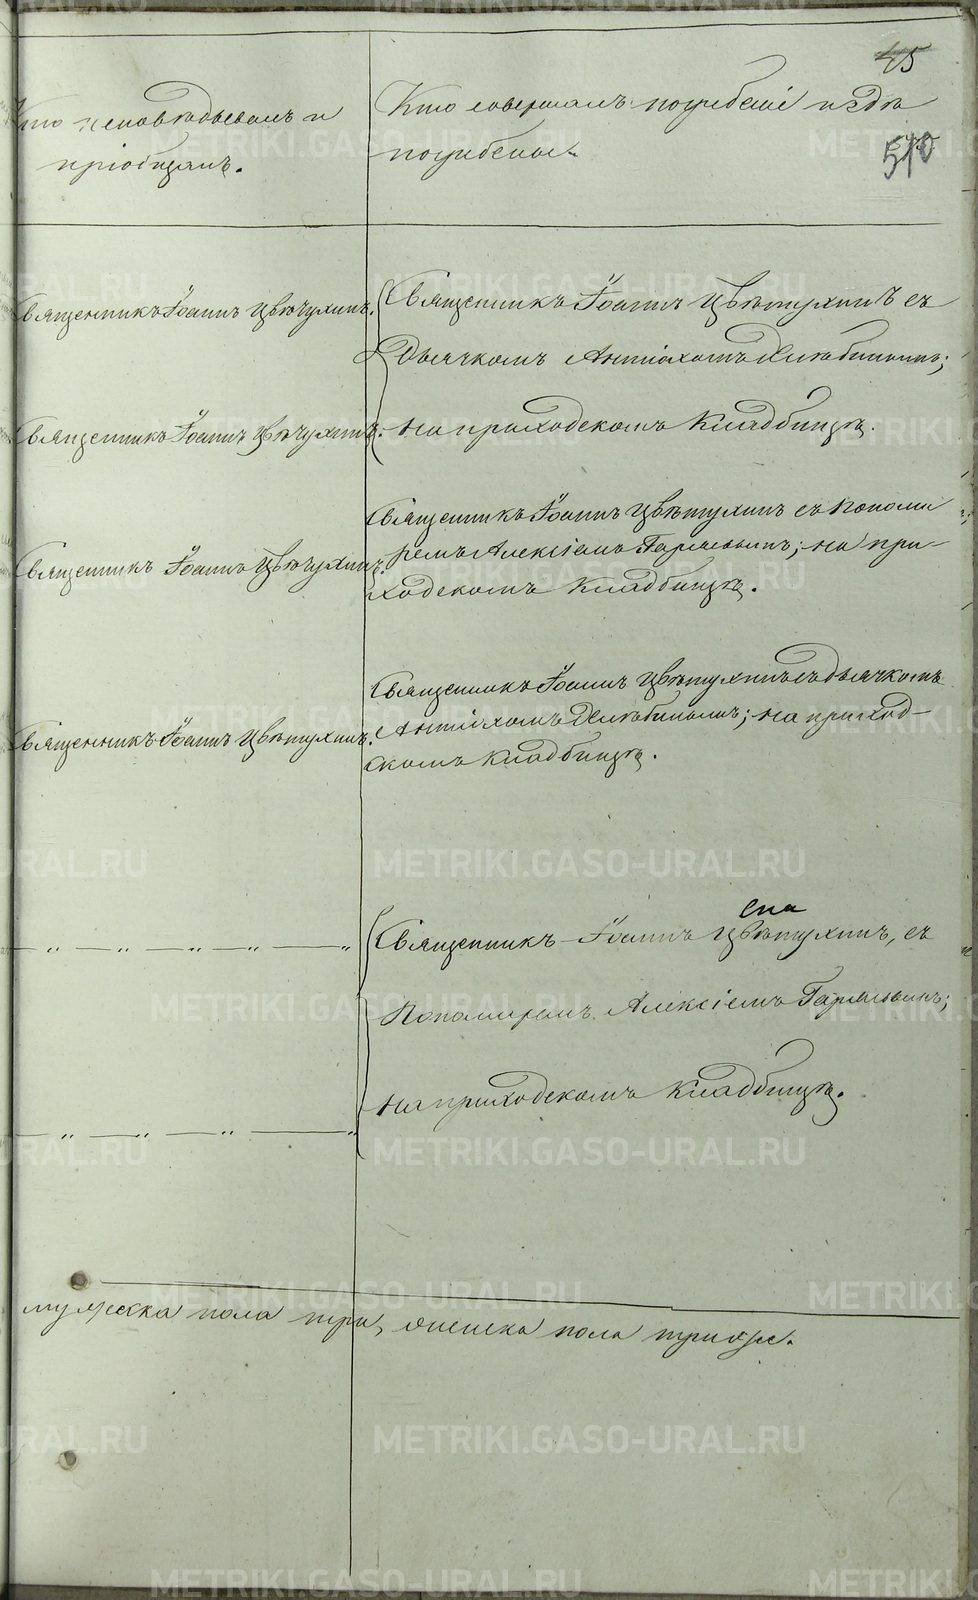 45
510
Кто исповѣдывалъ и
пріобщалъ.
Кто совершалъ погребеніе и гдѣ
погребены.
Священникъ Іоаннъ Цвѣтухинъ.
Священникъ Іоаннъ Цвѣтухинъ съ
Дьячкомъ Антіохомъ Хлѣбинымъ;
Священникъ Іоаннъ Цвѣтухинъ.
на приходскомъ Кладбищѣ.
Священникъ Іоаннъ Цвѣтухинъ съ Понома
Священникъ Іоаннъ Цвѣтухинъ.
ремъ Алексіемъ; на при-
ходскомъ Кладбищѣ.
Священникъ Іоаннъ Цвѣтухинъ съ дьячкомъ
Священникъ Іоаннъ Цвѣтухинъ.
Антіохомъ Хлѣбинымъ; на приход-
скомъ Кладбищѣ.
Священникъ Іоаннъ Цвѣтухинъ, съ
Пономаремъ Алексіемъ
на приходскомъ Кладбищѣ.
мужеска пола три, женска пола три же.
METRIKI.GASO-URAL.RU